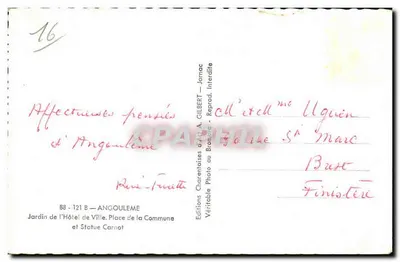 16
Affectueuses pensées
d'Angoulême
88 - 121 B — ANGOULEME
Jardin de l'Hôtel de Ville, Place de la Commune
et Statue Carnot
Editions Charentaises A. GILBERT — Jarnac
Véritable Photo au Bromure - Reprod. Interdite
M et Mme Uguen
St Marc
Brest
Finistère
CPAPHIL